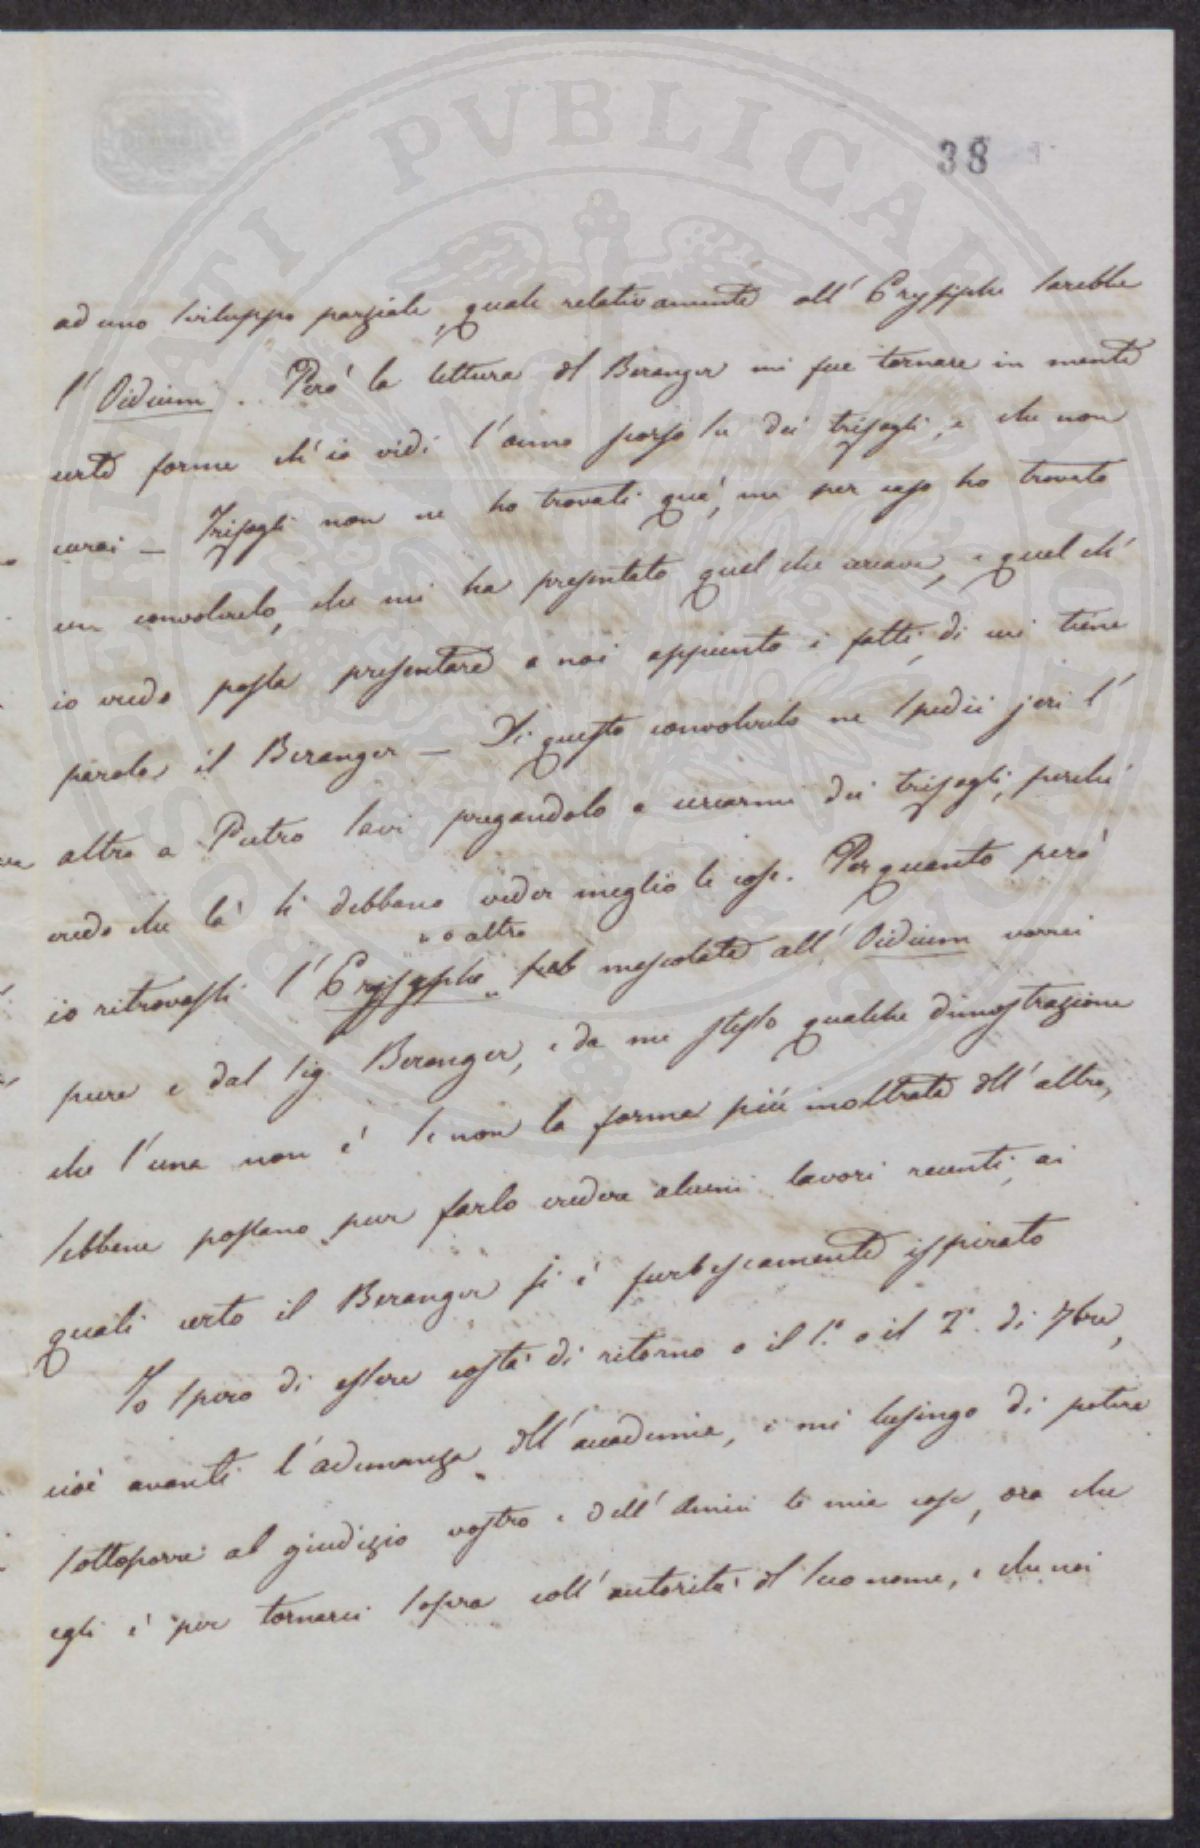 38
ad uno sviluppo parziale, quale relativamente all' Erysiphe sarebbe
l' Oidium. Però la lettura del Beranger mi fece tornare in mente
certe forme ch' io vidi l' anno scorso su dei trifogli, e che non
curai — Trifogli non ne ho trovati quà, ma per caso ho trovato
un convolvolo, che mi ha presentato quel che cercava, e quel ch'
io credo possa presentare a noi appunto i fatti di cui tiene
parola il Beranger — Di questo convolvolo ne spedii jeri l'
altro a Pietro Savi pregandolo a cercarmi dei trifogli, perchè
credo che là si debbano veder meglio le cose. Per quanto però
" o altro
io ritrovassi l' Erysiphe " mescolate all' Oidium vorrei
pure e dal Sig. Beranger, e da me stesso qualche dimostrazione
che l' una non è se non la forma più inoltrata dell' altra,
sebbene possano pur farlo credere alcuni lavori recenti, ai
quali certo il Beranger si è furbescamente ispirato
Io spero di essere costà di ritorno o il 1.° o il 2°. di 7bre,
cioè avanti l' adunanza dell' accademia, e mi lusingo di potere
sottoporre al giudizio vostro e dell' Amici le mie cose, ora che
egli è per tornarci sopra coll' autorità del suo nome, e che noi